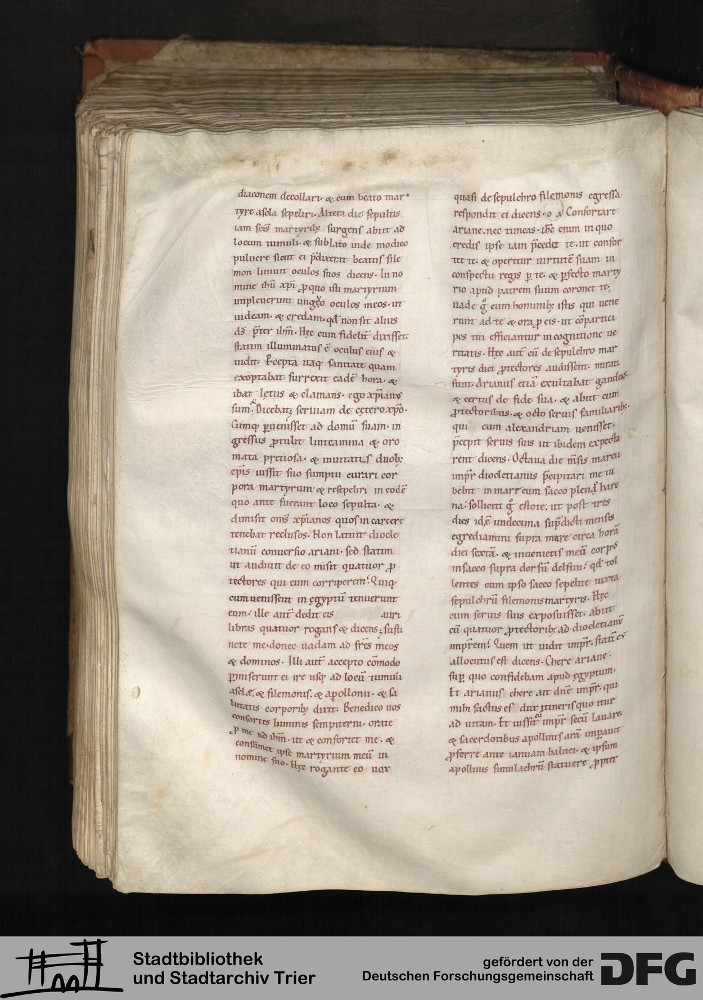 diaconem decollari· & eum beato mar
tyre asela sepeliri· Altera die sepultis
iam scis martyrib; surgens abiit ad
locum tumuli· & sublato inde modico
puluere sicut ei p̄dixerit beatus file
mon liniuit oculos suos dicens· In no
mine ihu xpi pro quo isti martyrium
impleuerunt ungo oculos meos· ut
uideam· & credam· qd non sit alius
ds pter ihm· Hec cum fideliter dixisset·
statim illuminatus ē oculus eius &
uidit· Recepta itaq; sanitate quam
exoptabat surrexit eadē hora· &
ibat letus & clamans· ego xpianus
sum· Dicebat; seruiam de cetero xpo·
Cumq; puenisset ad domū suam· in
gressus ptulit linteamina & oro
mata preciosa· & inuitatis duob;
epis iussit suo sumptu curari cor
pora martyrum & resepeliri in eodē
quo ante fuerant loco sepulta· &
dimisit oms xpianos quos in carcere
tenebat reclusos· Non latuit diocle
tianū conuersio ariani· sed statim
ut audiuit de eo misit quatuor p
tectores qui eum corriperent· Quiq;
cum uenissent in egyptū tenuerunt
eum· ille aut dedit eis auri
libras quatuor rogans & dicens; susti
nete me· donec uadam ad frēs meos
& dominos· Illi aut accepto cōmodo
pmiserunt ei ire usq; ad locū tumuli
aselæ· & filemonis· & apollonii· & sa
lutatis corporib; dixit· Benedico uos
consortes luminis sempiterni· orate
p me ad ihm· ut & confortet me· &
consūmet ipse martyrium meū in
nomine suo· Hec rogante eo uox
quasi de sepulchro filemonis egressa
respondit ei dicens· o Confortare
ariane· nec timeas· ihc enim in quo
credis ipse iam pcedit te· ut confor
tet te· & operetur uirtutē suam in
conspectu regis p te· & pfecto marty
rio apud patrem suum coronet te·
uade g cum hominib; istis qui uene
runt ad te & ora p eis· ut cōpartici
pes tui efficiantur in cognitione ue
ritatis· Hec aut cū de sepulchro mar
tyris dici ptectores audissent· mirati
sunt· Arianus etiā exultabat gaudens
& certus de fide sua· & abiit cum
ptectoribus· & octo seruis familiarib;
qui cum alexandriam uenisset·
pcepit seruis suis ut ibidem expecta
rent dicens· Octaua die mīsis martii
impr diocletianus pcipitari me iu
bebit in mare cum sacco plenū hare
na· solliciti g estote· ut post tres
dies id ē undecima supdicti mensis
egrediamini supra mare circa horā
diei sextā· & inuenietis meū corps
in sacco supra dorsū delfini· qd tol
lentes cum ipso sacco sepelite iuxta
sepulchrū filemonis martyris· Hec
cum seruis suis exposuisset· abiit
cū quatuor ptectorib; ad diocletianū
imprem· Quem ut uidit impr· statī ei
allocutus est dicens· Chere ariane·
sup quo confidebam apud egyptum·
Et arianus· chere ait dne impr· qui
mihi factus es dux itineris quo itur
ad uitam· Et iussit eū impr secū lauare
& sacerdotibus apollinis arā impauit
pferre ante ianuam balnei· & ipsum
apollinis simulachrū statuere ppter
Stadtbibliothek
und Stadtarchiv Trier
gefördert von der
Deutschen Forschungsgemeinschaft
DFG